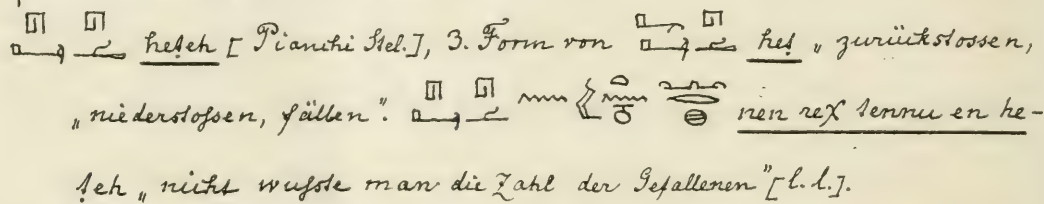 heṭeh [Pianchi Stel.], 3. Form von heṭ „zurückstossen,
„niederstoſsen, fällen“: nen reχ tennu en he-
ṭeh „nicht wuſste man die Zahl der Gefallenen“ [l. l.].